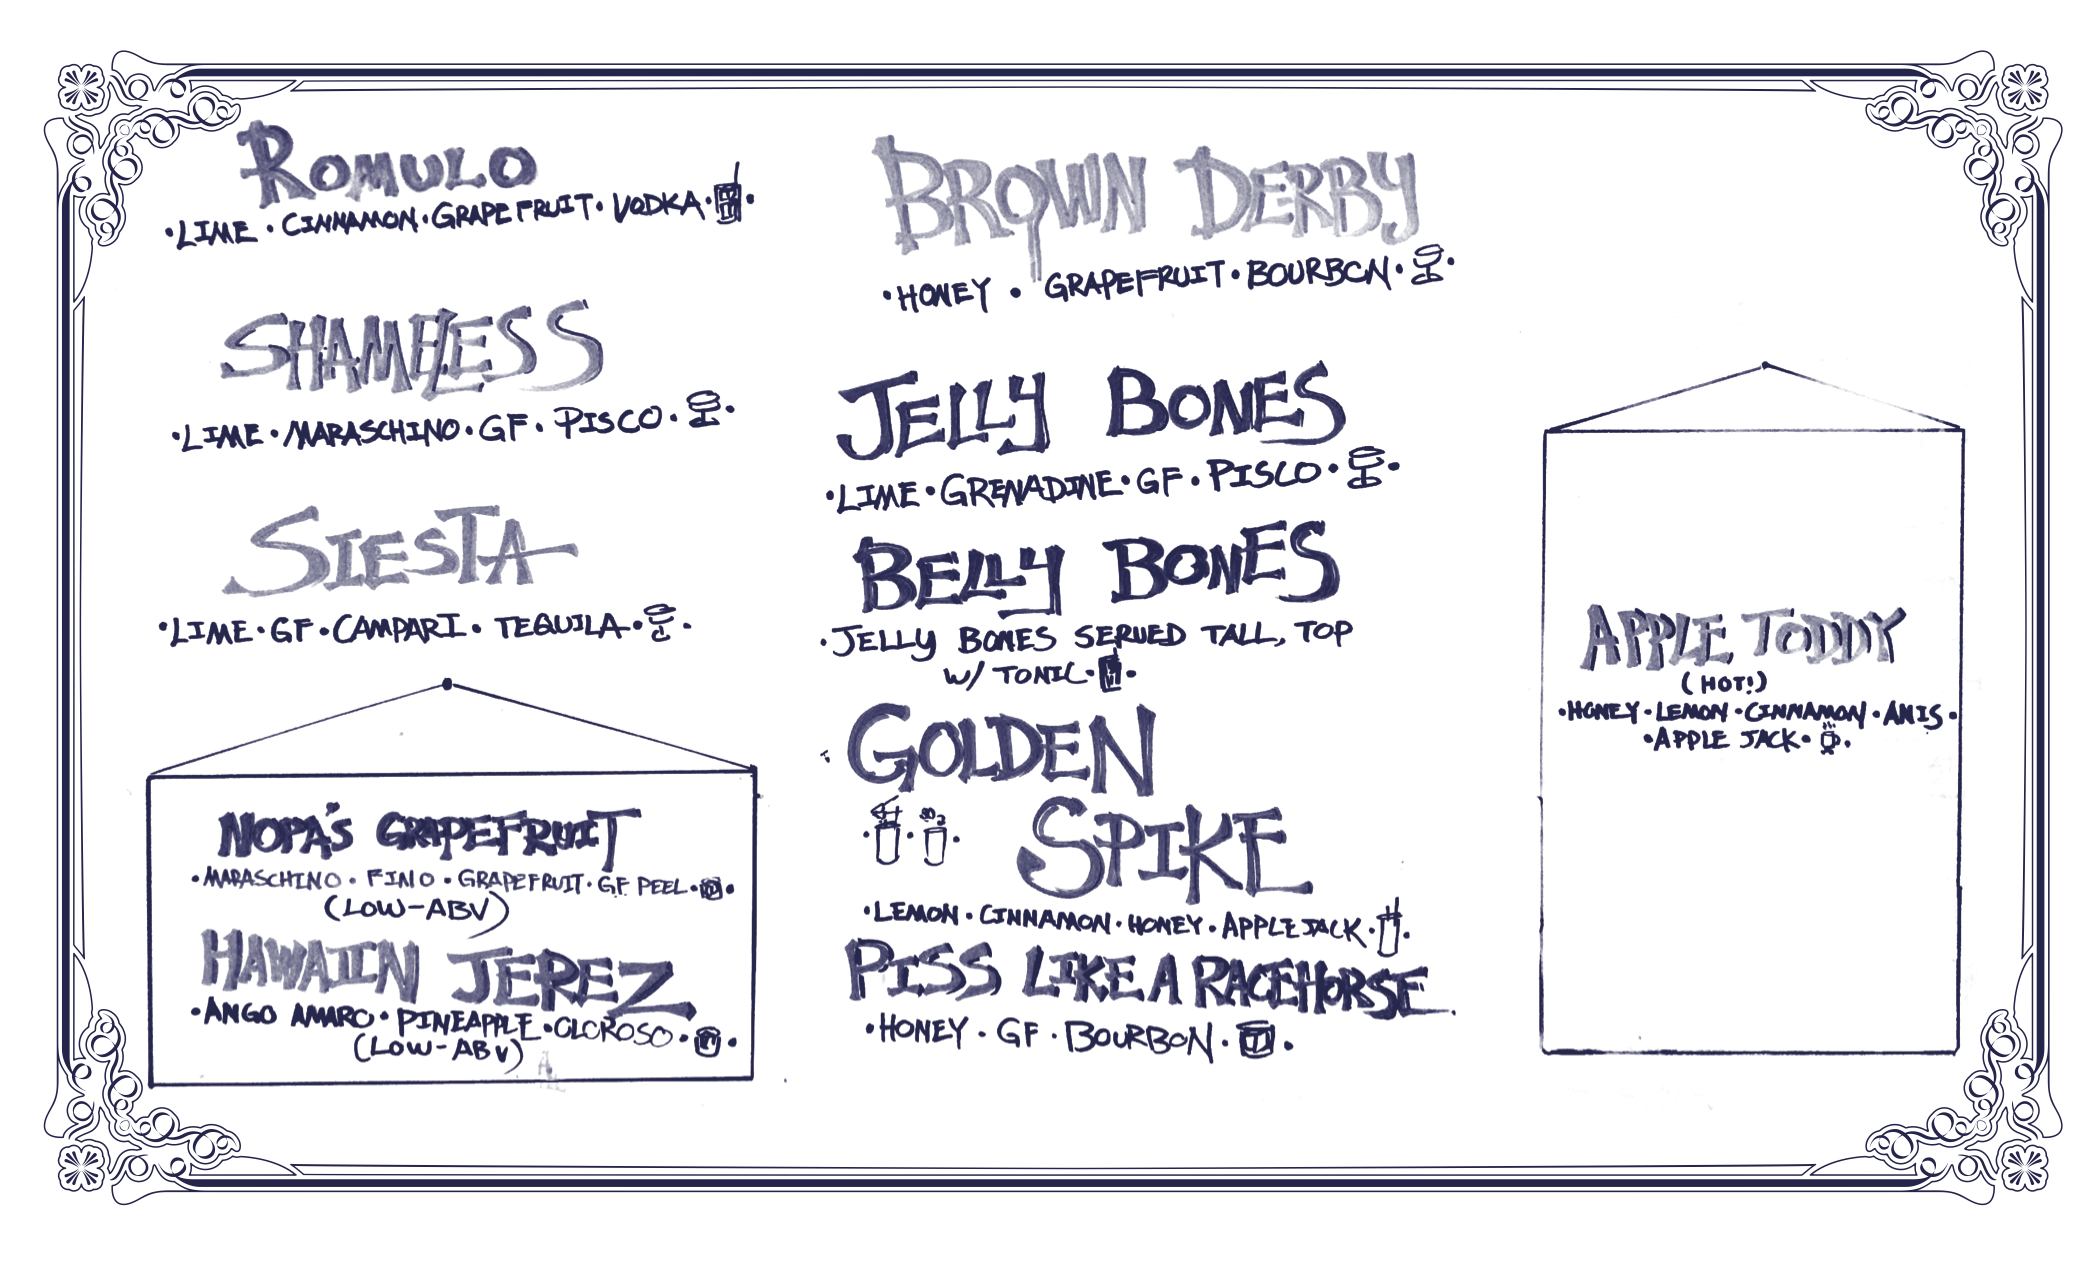 ROMULO
•LIME •CINNAMON•GRAPEFRUIT•VODKA•
SHAMELESS
•LIME•MARASCHINO•GF•PISCO•
SIESTA
•LIME•GF•CAMPARI•TEQUILA•
NOPA'S GRAPEFRUIT
•MARASCHINO•FINO•GRAPEFRUIT•GF PEEL•
(LOW-ABV)
HAWAIIN JEREZ
•ANGO AMARO•PINEAPPLE•OLOROSO•
(LOW-ABV)
BROWN DERBY
•HONEY • GRAPEFRUIT•BOURBON•
JELLY BONES
•LIME•GRENADINE•GF•PISCO•
BELLY BONES
•JELLY BONES SERVED TALL, TOP
W/ TONIC•
GOLDEN
SPIKE
•LEMON•CINNAMON•HONEY•APPLEJACK•
PISS LIKE A RACEHORSE
•HONEY•GF•BOURBON•
APPLE TODDY
(HOT!)
•HONEY•LEMON•CINNAMON•ANIS•
•APPLE JACK•